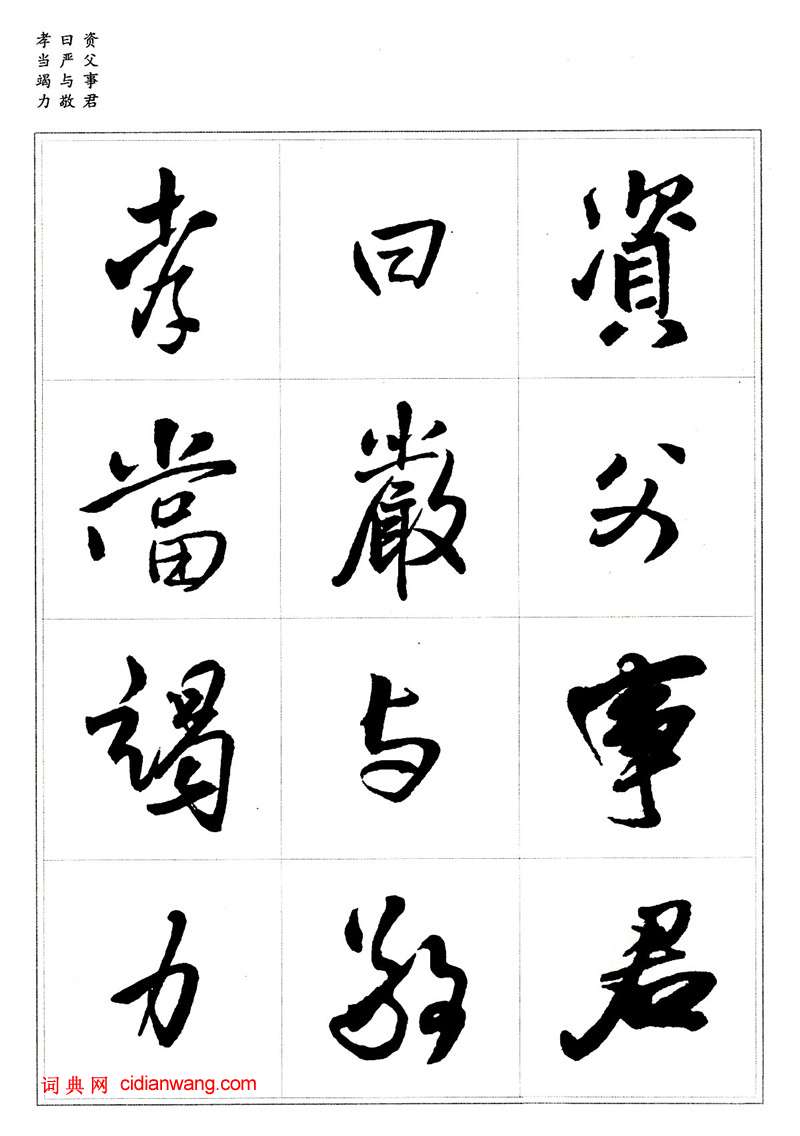 资父事君
曰严与敬
孝当竭力
資父事君
曰嚴与敬
孝當竭力
词典网 cidianwang.com